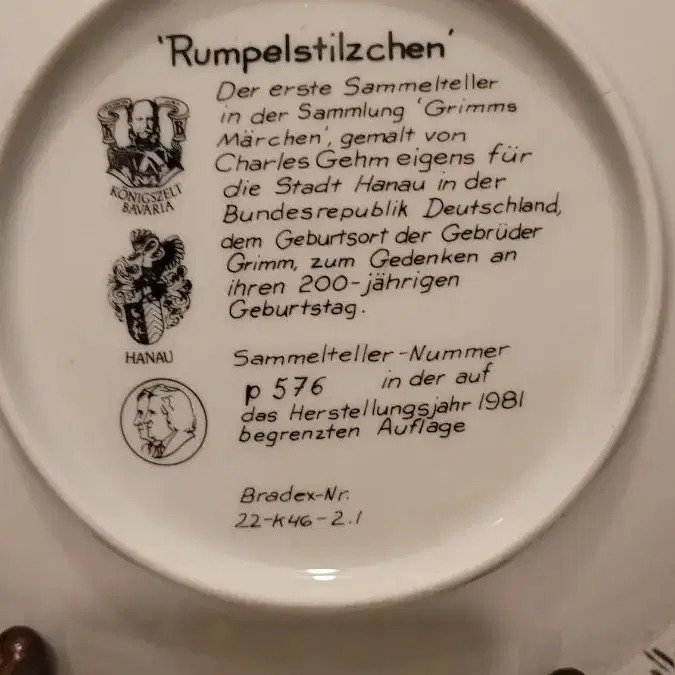 'Rumpelstilzchen'
Der erste Sammelteller
in der Sammlung 'Grimms
Märchen', gemalt von
Charles Gehm eigens für
die Stadt Hanau in der
Bundesrepublik Deutschland,
dem Geburtsort der Gebrüder
Grimm, zum Gedenken an
ihren 200-jährigen
Geburtstag.
K B
KÖNIGSZELT
BAVARIA
HANAU
Sammelteller-Nummer
p 576 in der auf
das Herstellungsjahr 1981
begrenzten Auflage
Bradex-Nr.
22-K46-2.1